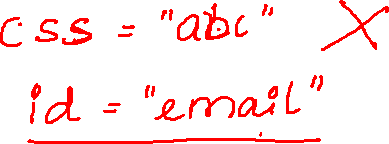 css = "abc" X
id = "email"